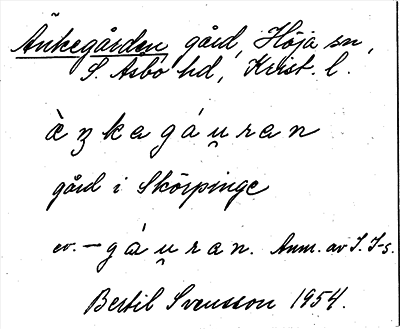 Änkegården gård, Höja sn,
S. Åsbo hd, Krist. l.
ὰ̀ŋkagáu̯ran
gård i Skörpinge
ev. –gáu̯ran. Anm. av I. I-s.
Bertil Svensson 1954.